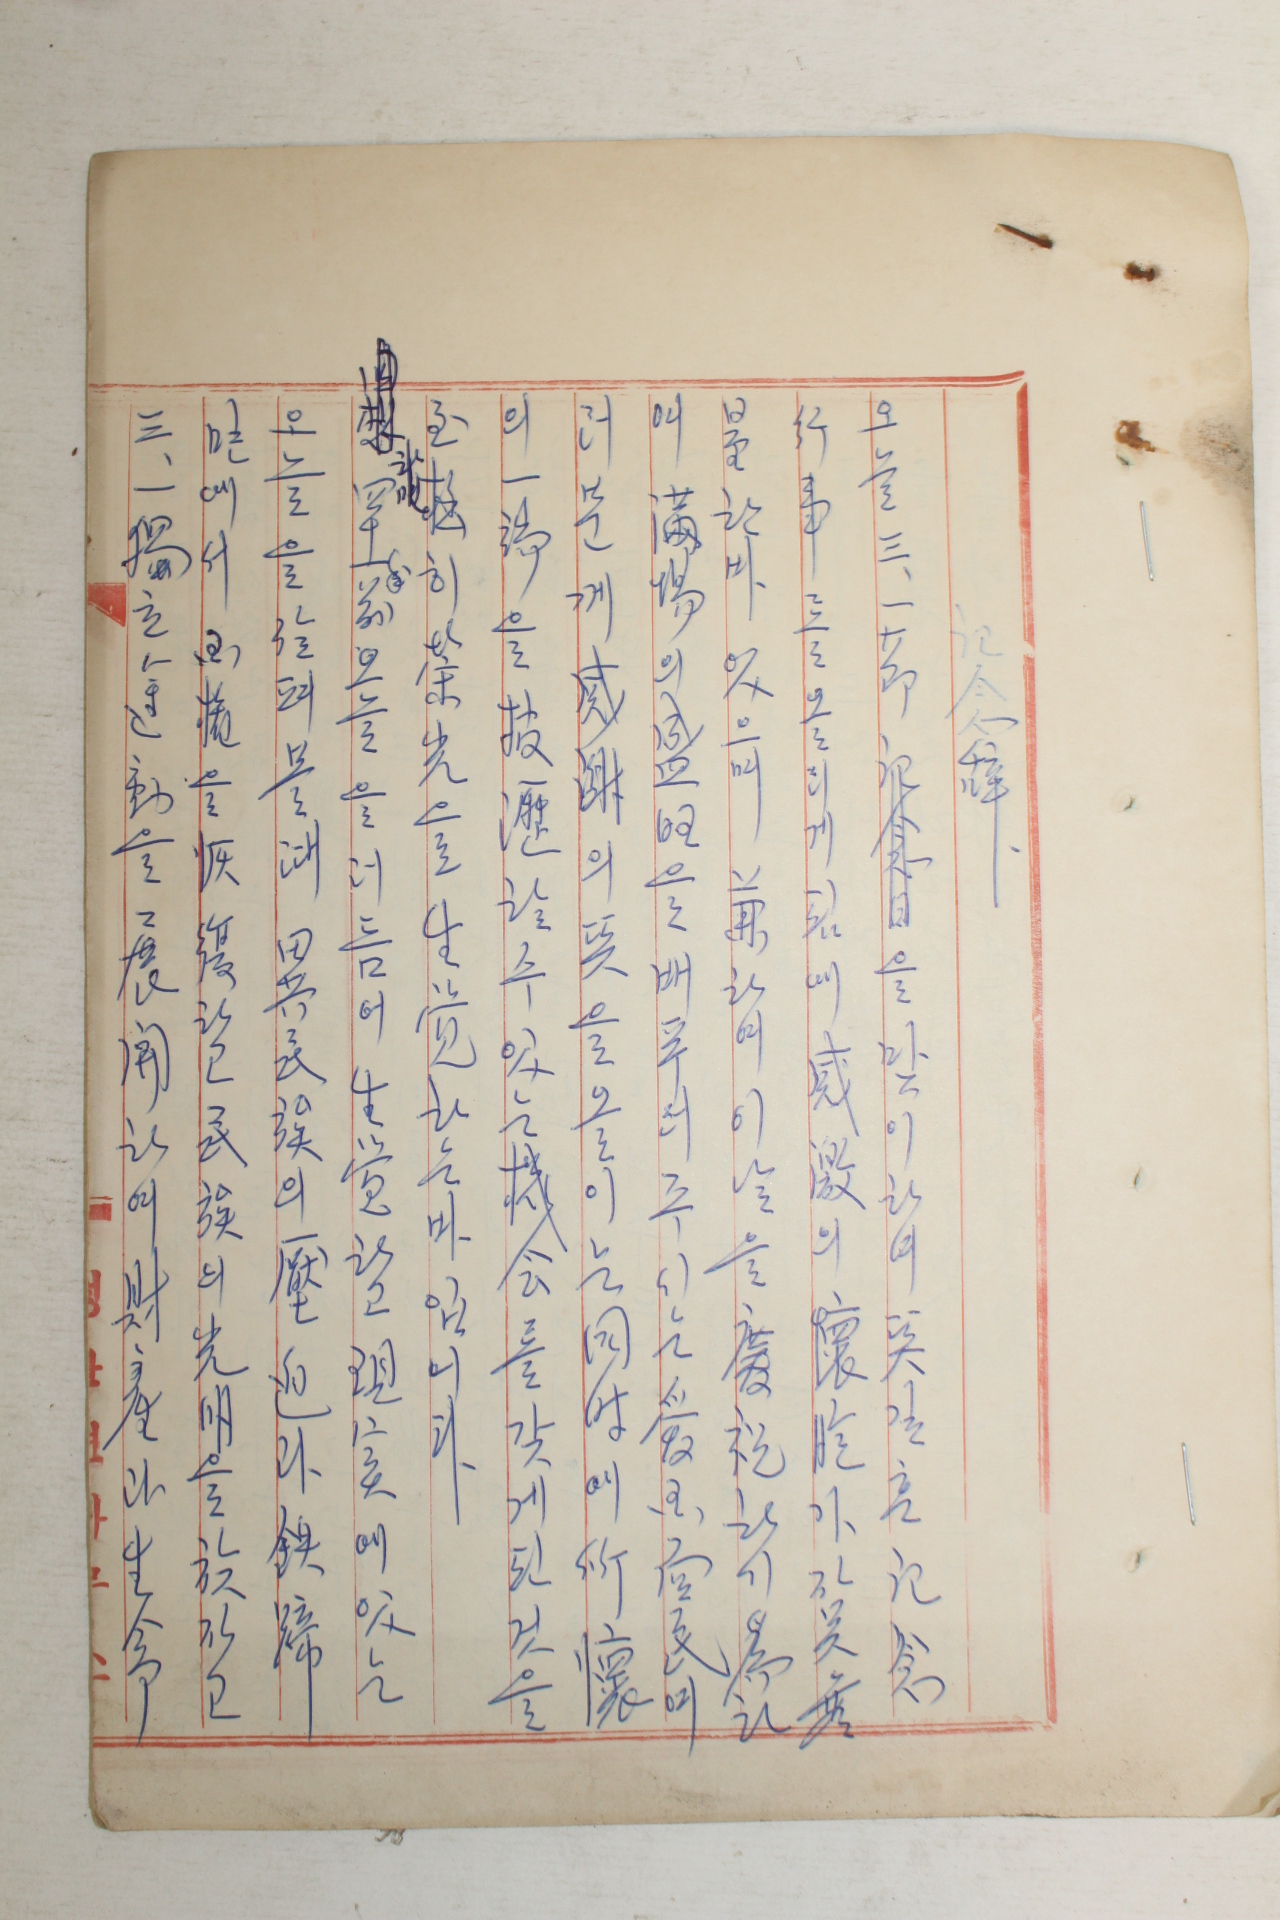 記念辭.
오늘 三、一節 記念日을 맞이하여 뜻깊은 記念
行事를 올리게 됨에 感激의 懷 가 자못 無
량한바 있으며 兼하여 이날을 慶祝하기 爲하
여 滿場의 盛旺을 베푸러 주시는 愛国 民여
러분께 感謝의 뜻을 올이는 同時에 所懷
의 一端을 披瀝할 수 있는 機会를 갖게된 것을
至極히 榮光으로 生覚하는바 입니다.
오늘을 더듬어 生覚하고 現実에 있는
오늘을 살펴볼때 異民族의 壓迫과 鉄蹄
밑에서 国權을 恢復하고 民族의 光明을 찾자고
三、一獨立運動을 展開하여 財産과 生命